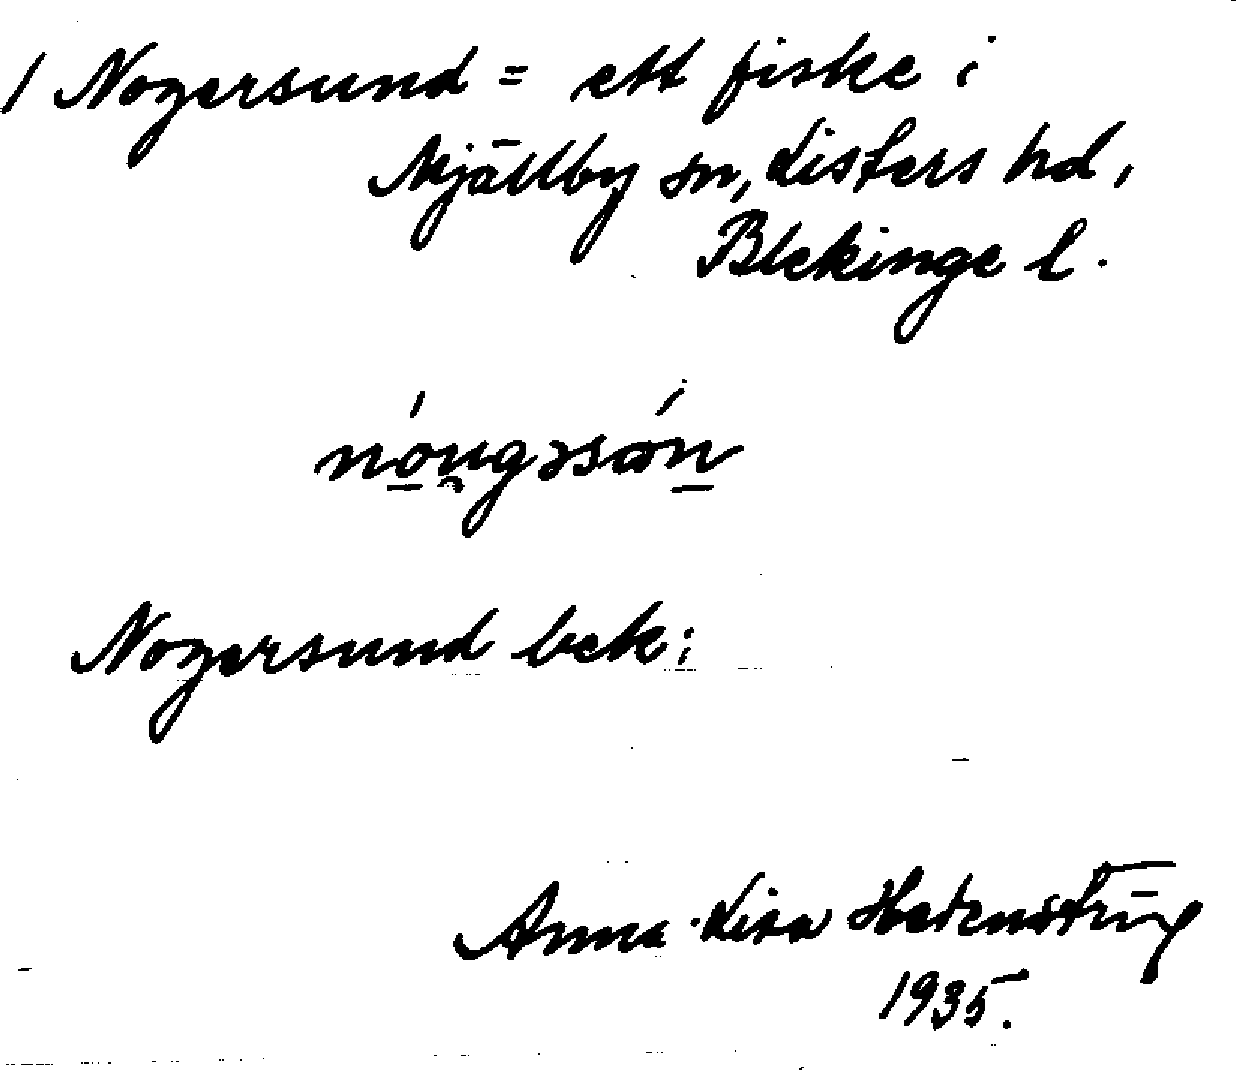 / Nogersund = ett fiske i
Mjällby sn, Listers hd,
Blekinge l.
nóu̯gəsón
Nogersund bek:
Anna-Lisa
1935.